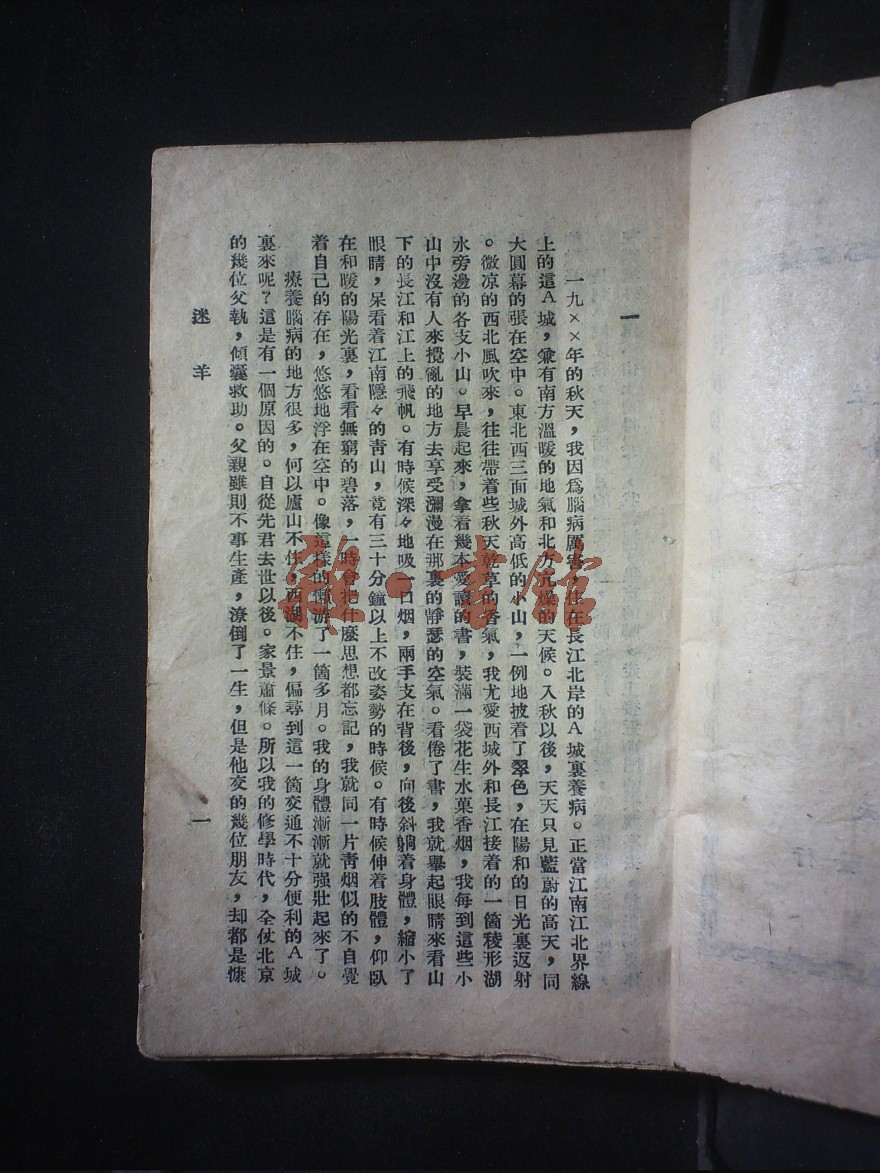 一
一九××年的秋天，我因爲腦病厲害，住在長江北岸的A城裏養病。正當江南江北界線
上的這A城，兼有南方溫暖的地氣和北方亢燥的天候。入秋以後，天天只見藍蔚的高天，同
大圓幕的張在空中。東北西三面城外高低的小山，一例地披着了翠色，在陽和的日光裏返射
。微凉的西北風吹來，往往帶着些秋天乾草的香氣，我尤愛西城外和長江接着的一箇稜形湖
水旁邊的各支小山。早晨起來，拿着幾本愛讀的書，裝滿一袋花生水菓香烟，我每到這些小
山中沒有人來攪亂的地方去享受瀰漫在那裏的靜瑟的空氣。看倦了書，我就舉起眼睛來看山
下的長江和江上的飛帆。有時候深々地吸一口烟，兩手支在背後，向後斜躺着身體，縮小了
眼睛，呆看着江南隱々的靑山，竟有三十分鐘以上不改姿勢的時候。有時候伸着肢體，仰臥
在和暖的陽光裏，看看無窮的碧落，一時會把什麽思想都忘記，我就同一片靑烟似的不自覺
着自己的存在，悠悠地浮在空中。像這樣的懶游了一箇多月。我的身體漸漸就强壯起來了。
療養腦病的地方很多，何以廬山不住，西湖不住，偏尋到這一箇交通不十分便利的A城
裏來呢？這是有一個原因的。自從先君去世以後。家景蕭條。所以我的修學時代，全仗北京
的幾位父執，傾囊救助。父親雖則不事生產，潦倒了一生，但是他交的幾位朋友，却都是慷
迷羊
一
雜·書館